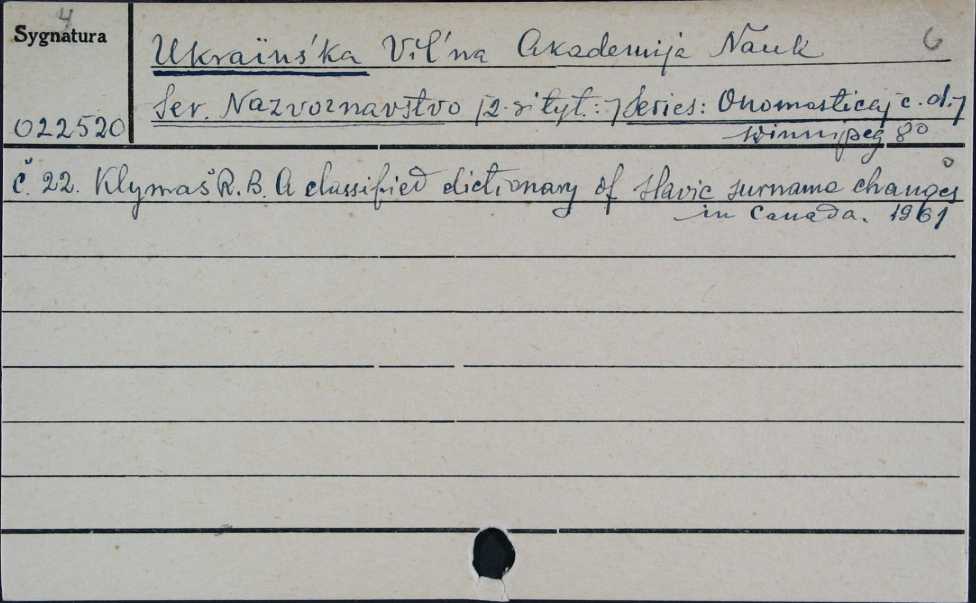 4
Sygnatura
022520
Ukraïns'ka Vil'na Akademija Nauk
6
Ser. Nazvoznavstvo [2. si tyt.:] Series: Onomastica] c. d.]
Winnipeg 8o
č. 22. Klymaš R. B. A classified dictionary of slavic surname changes
in Canada. 1961